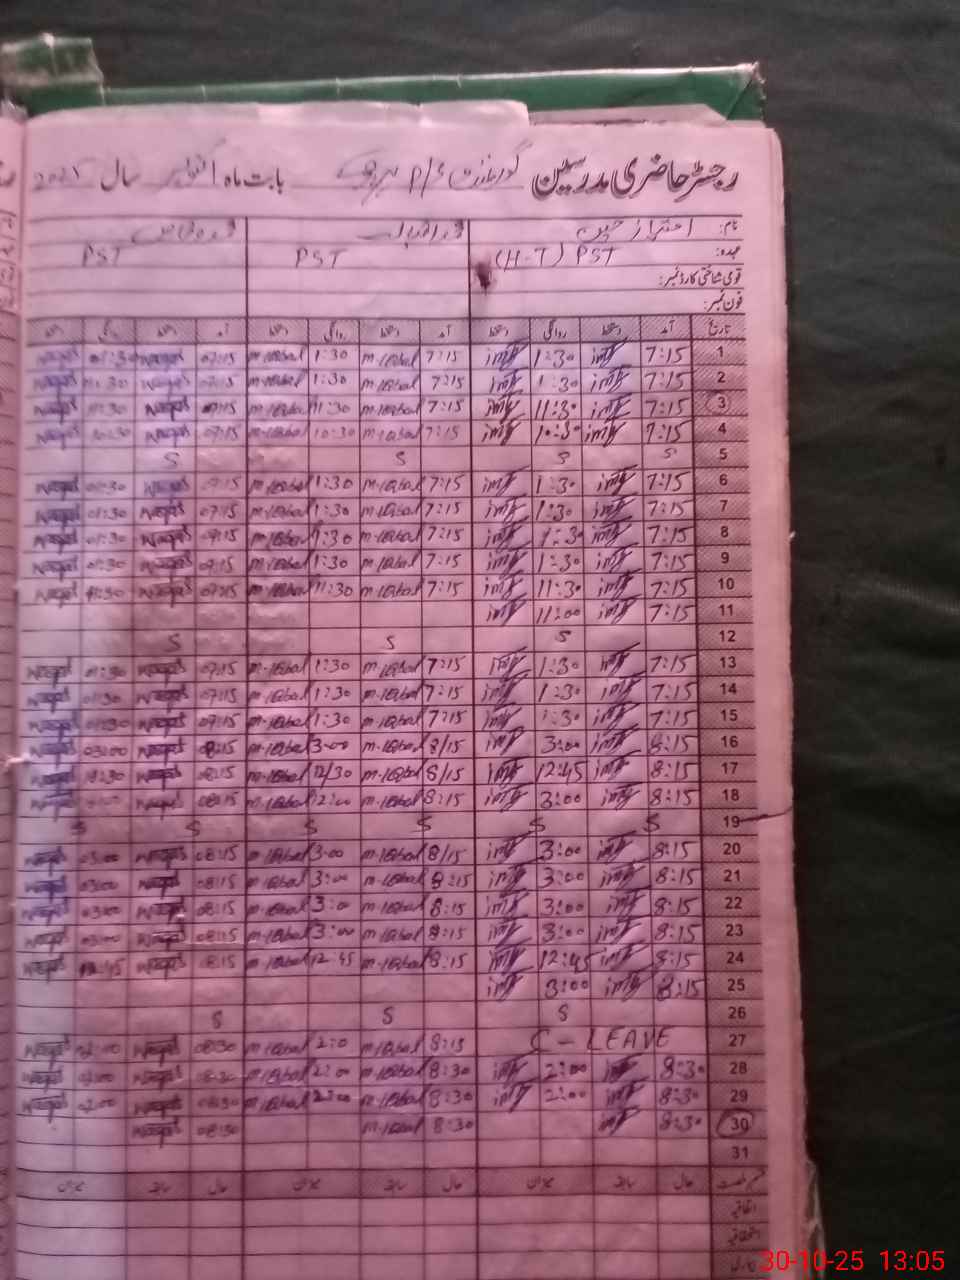 رجسٹر حاضری مدرسین گورنمنٹ P/S بابت ماہ اکتوبر سال 2025
نام: احتراز حسین محمد اقبال محمد وقاص
عہدہ: (H-T) PST PST PST
قومی شناختی کارڈ نمبر:
فون نمبر:
تاریخ آمد دستخط روانگی دستخط آمد دستخط روانگی دستخط آمد دستخط روانگی دستخط
1 7:15 1:30 7:15 m-iqbal 1:30 m-iqbal 07:15 Waqas 01:30 Waqas
2 7:15 1:30 7:15 m-iqbal 1:30 m-iqbal 07:15 Waqas 01:30 Waqas
3 7:15 11:30 7:15 m-iqbal 11:30 m-iqbal 07:15 Waqas 11:30 Waqas
4 7:15 10:30 7:15 m-iqbal 10:30 m-iqbal 07:15 Waqas 10:30 Waqas
5 S S S S
6 7:15 1:30 7:15 m-iqbal 1:30 m-iqbal 07:15 Waqas 01:30 Waqas
7 7:15 1:30 7:15 m-iqbal 1:30 m-iqbal 07:15 Waqas 01:30 Waqas
8 7:15 1:30 7:15 m-iqbal 1:30 m-iqbal 07:15 Waqas 01:30 Waqas
9 7:15 1:30 7:15 m-iqbal 1:30 m-iqbal 07:15 Waqas 01:30 Waqas
10 7:15 11:30 7:15 m-iqbal 11:30 m-iqbal 07:15 Waqas 11:30 Waqas
11 7:15 11:00
12 S S S
13 7:15 1:30 7:15 m-iqbal 1:30 m-iqbal 07:15 Waqas 01:30 Waqas
14 7:15 1:30 7:15 m-iqbal 1:30 m-iqbal 07:15 Waqas 01:30 Waqas
15 7:15 1:30 7:15 m-iqbal 1:30 m-iqbal 07:15 Waqas 01:30 Waqas
16 8:15 3:00 8/15 m-iqbal 3:00 m-iqbal 08:15 Waqas 03:00 Waqas
17 8:15 12:45 8/15 m-iqbal 12/30 m-iqbal 08:15 Waqas 12:30 Waqas
18 8:15 3:00 8:15 m-iqbal 12:00 m-iqbal 08:15 Waqas Waqas
19 S S S S S S
20 8:15 3:00 8/15 m-iqbal 3:00 m-iqbal 08:15 Waqas 03:00 Waqas
21 8:15 3:00 8:15 m-iqbal 3:00 m-iqbal 08:15 Waqas 03:00 Waqas
22 8:15 3:00 8:15 m-iqbal 3:0 m-iqbal 08:15 Waqas 03:00 Waqas
23 8:15 3:00 8:15 m-iqbal 3:00 m-iqbal 08:15 Waqas 03:00 Waqas
24 8:15 12:45 8:15 m-iqbal 12:45 m-iqbal 08:15 Waqas 12:45 Waqas
25 8:15 3:00
26 S S S
27 C - LEAVE 8:15 m-iqbal 2:0 m-iqbal 08:30 Waqas 02:00 Waqas
28 8:30 2:00 8:30 m-iqbal 2:00 m-iqbal 08:30 Waqas 02:00 Waqas
29 8:30 2:00 8:30 m-iqbal 2:00 m-iqbal 08:30 Waqas 02:00 Waqas
30 8:30 8:30 m-iqbal 08:30 Waqas
31
قسم رخصت حال سابقہ میزان حال سابقہ میزان حال سابقہ میزان
اتفاقیہ
استحقاقیہ
30-10-25 13:05